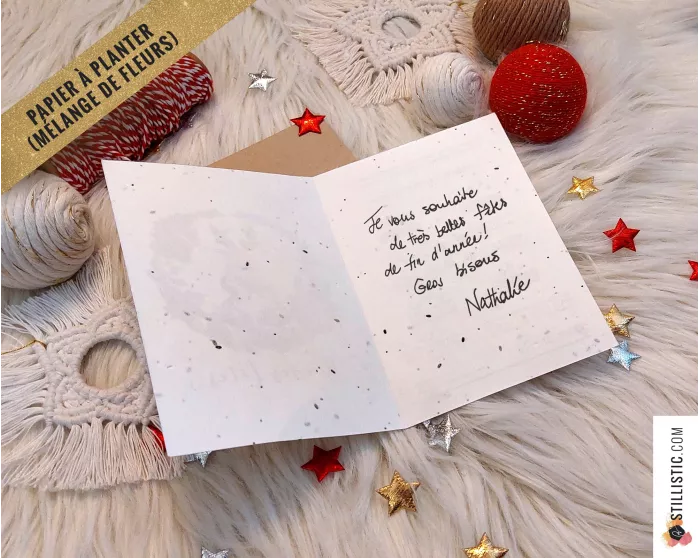 PAPIER À PLANTER
(MÉLANGE DE FLEURS)
Je vous souhaite
de très belles fêtes
de fin d'année!
Gros bisous
Nathalie
STILLISTIC.COM